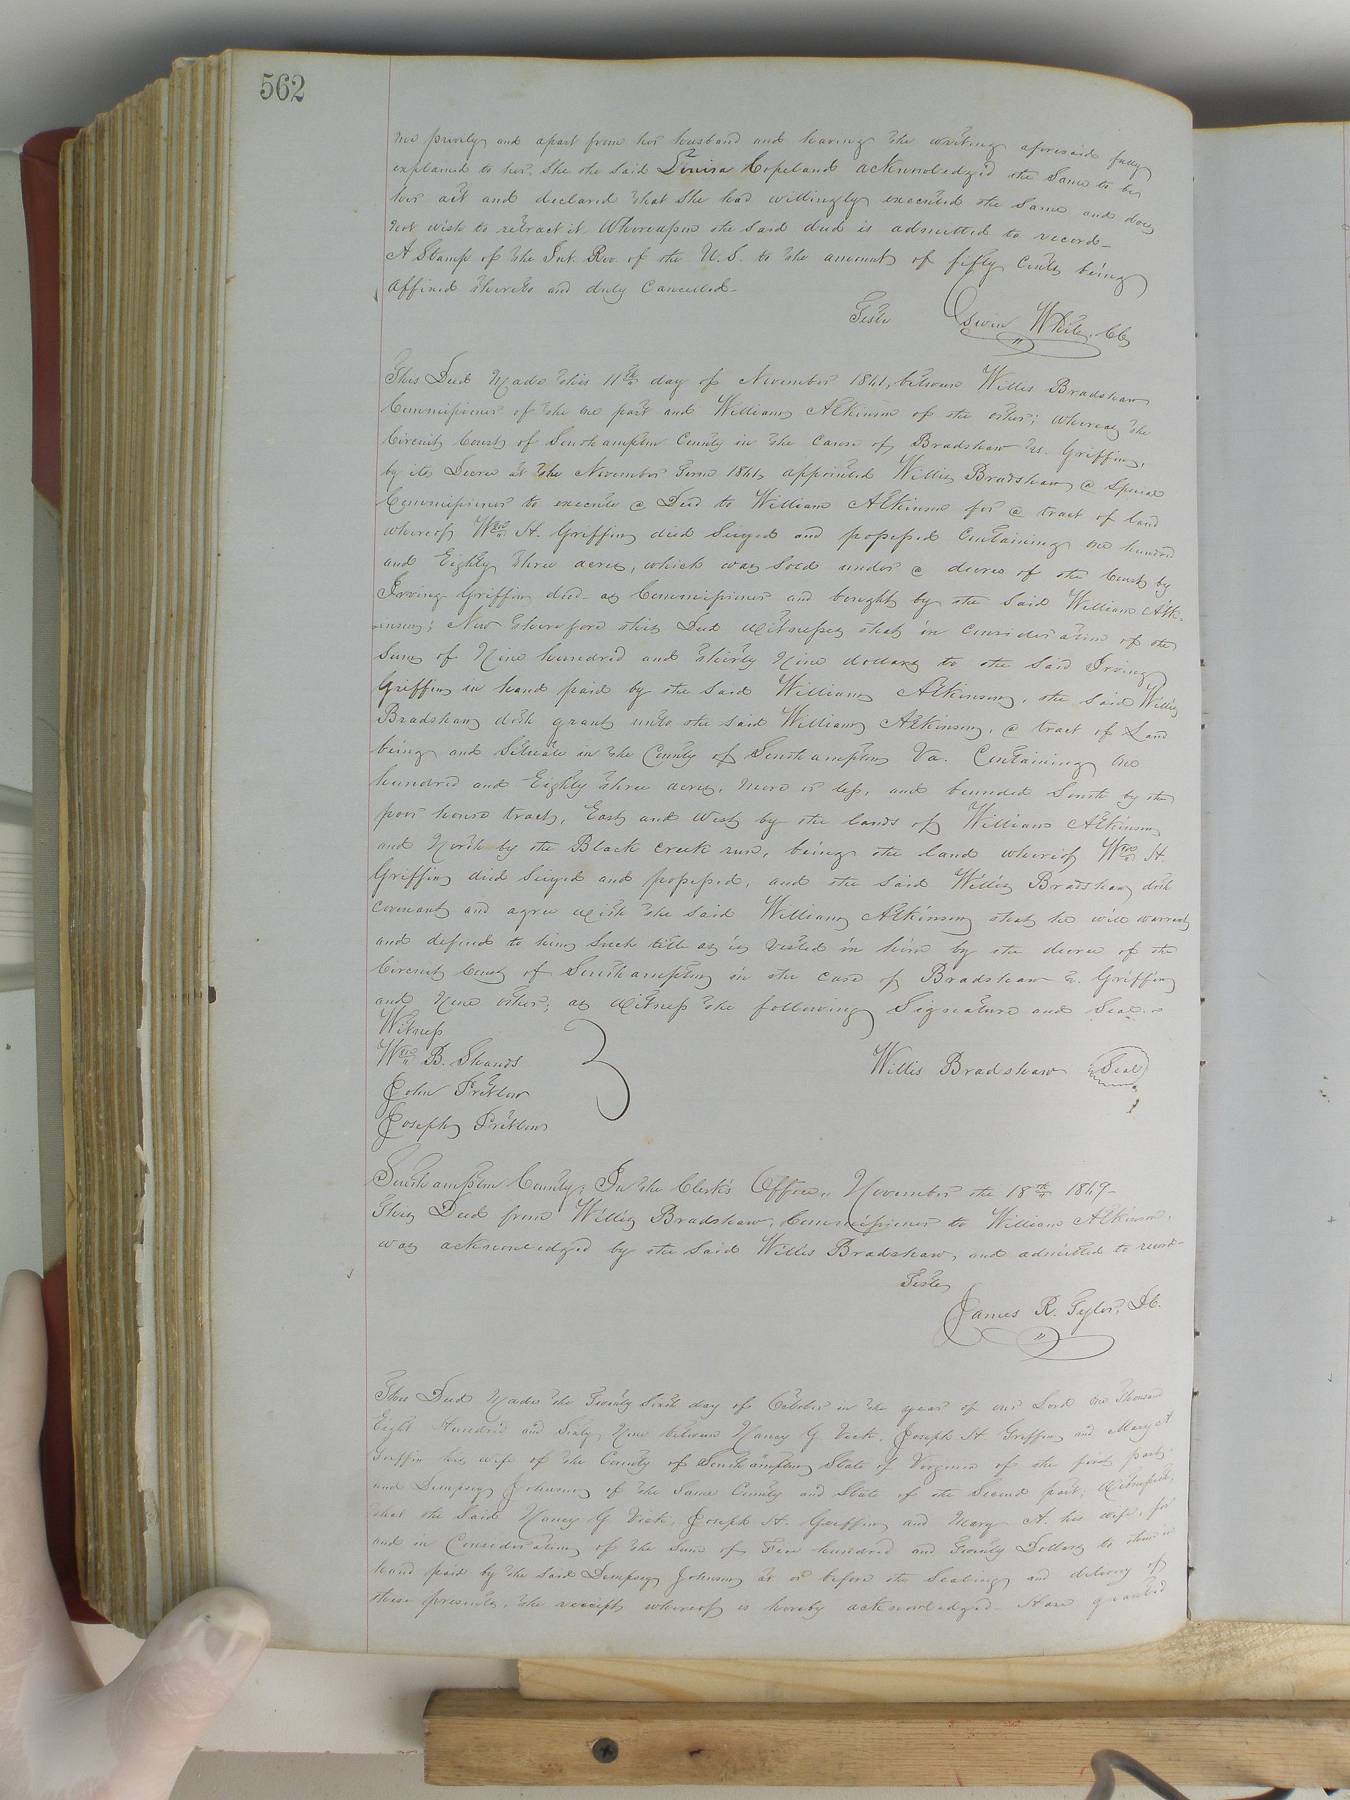 562
me privily and apart from her husband and having the writing aforesaid fully
explained to her, She the said Louisa Copeland acknowledged the Same to be
her act and declared that She had willingly executed the Same and does
not wish to retract it. Whereupon the said deed is admitted to record-
A Stamp of the Int. Rev. of the U.S. to the amount of fifty Cents being
affixed thereto and duly Cancelled-
Teste Edwin White, Clk
This Deed Made this 11th day of November between Willis Bradshaw
Commissioner of the one part and William Atkinson of the other; whereas the
Circuit Court of Southampton County in the cause of Bradshaw vs. Griffin,
by its Decree at the November Term appointed Willis Bradshaw a Special
Commissioner to execute a Deed to William Atkinson for a tract of land
whereof Wm H. Griffin died Seized and possessed Containing one hundred
and Eighty three acres, which was Sold under a decree of the Court by
Irving Griffin decd- as Commissioner and bought by the Said William Atk-
inson; Now therefore this Deed Witnesses that in consideration of the
Sum of Nine hundred and thirty Nine dollars to the Said Irving
Griffin in hand paid by the Said William Atkinson, the said Willis
Bradshaw doth grant unto the said William Atkinson, a tract of Land
being and Situate in the County of Southampton Va. Containing one
hundred and Eighty three acres, More or less, and bounded South by the
poor house tract, East and West by the lands of William Atkinson
and North by the Black creek run, being the land whereof Wm H.
Griffin died Seized and possessed, and the said Willis Bradshaw doth
covenant and agree with the said William Atkinson that he will warrant
and defend to him Such title as is vested in him by the decree of the
Circuit Court of Southampton in the case of Bradshaw v. Griffin
and None other; as Witness the following Signature and Seal.
Witness
Wm B. Shands
John Pretlow
Joseph Pretlow
Willis Bradshaw Seal
Southampton County; In the Clerk's Office November the 18th
This Deed from Willis Bradshaw, Commissioner to William Atkinson,
was acknowledged by the Said Willis Bradshaw, and admitted to record-
Teste,
James R. Tyler, D.C.
This Deed Made the Twenty Sixth day of October in the year of our Lord one Thousand
Eight Hundred and Sixty Nine between Nancy G. Vick, Joseph H. Griffin and Mary A
Griffin his wife of the County of Southampton State of Virginia of the first part,
and Dempsey Johnson of the Same County and State of the Second part; Witnesseth,
that the Said Nancy G Vick, Joseph H. Griffin and Mary A. his wife, for
and in Consideration of the Sum of hundred and Twenty Dollars to them in
hand paid by the Said Dempsey Johnson at or before the Sealing and delivery of
these presents, the receipt whereof is hereby acknowledged- Have granted